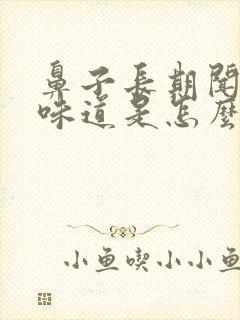 鼻子長期聞
味道是怎麼
小鱼喫小小鱼